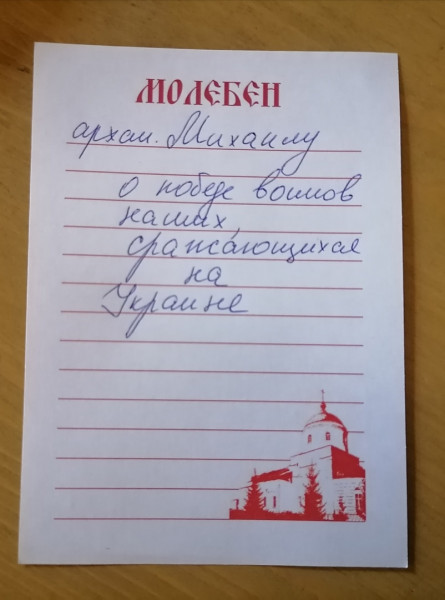 МОЛЕБЕН
архан. Михаилу
о победе воинов
наших,
сражающихся
на
Украине